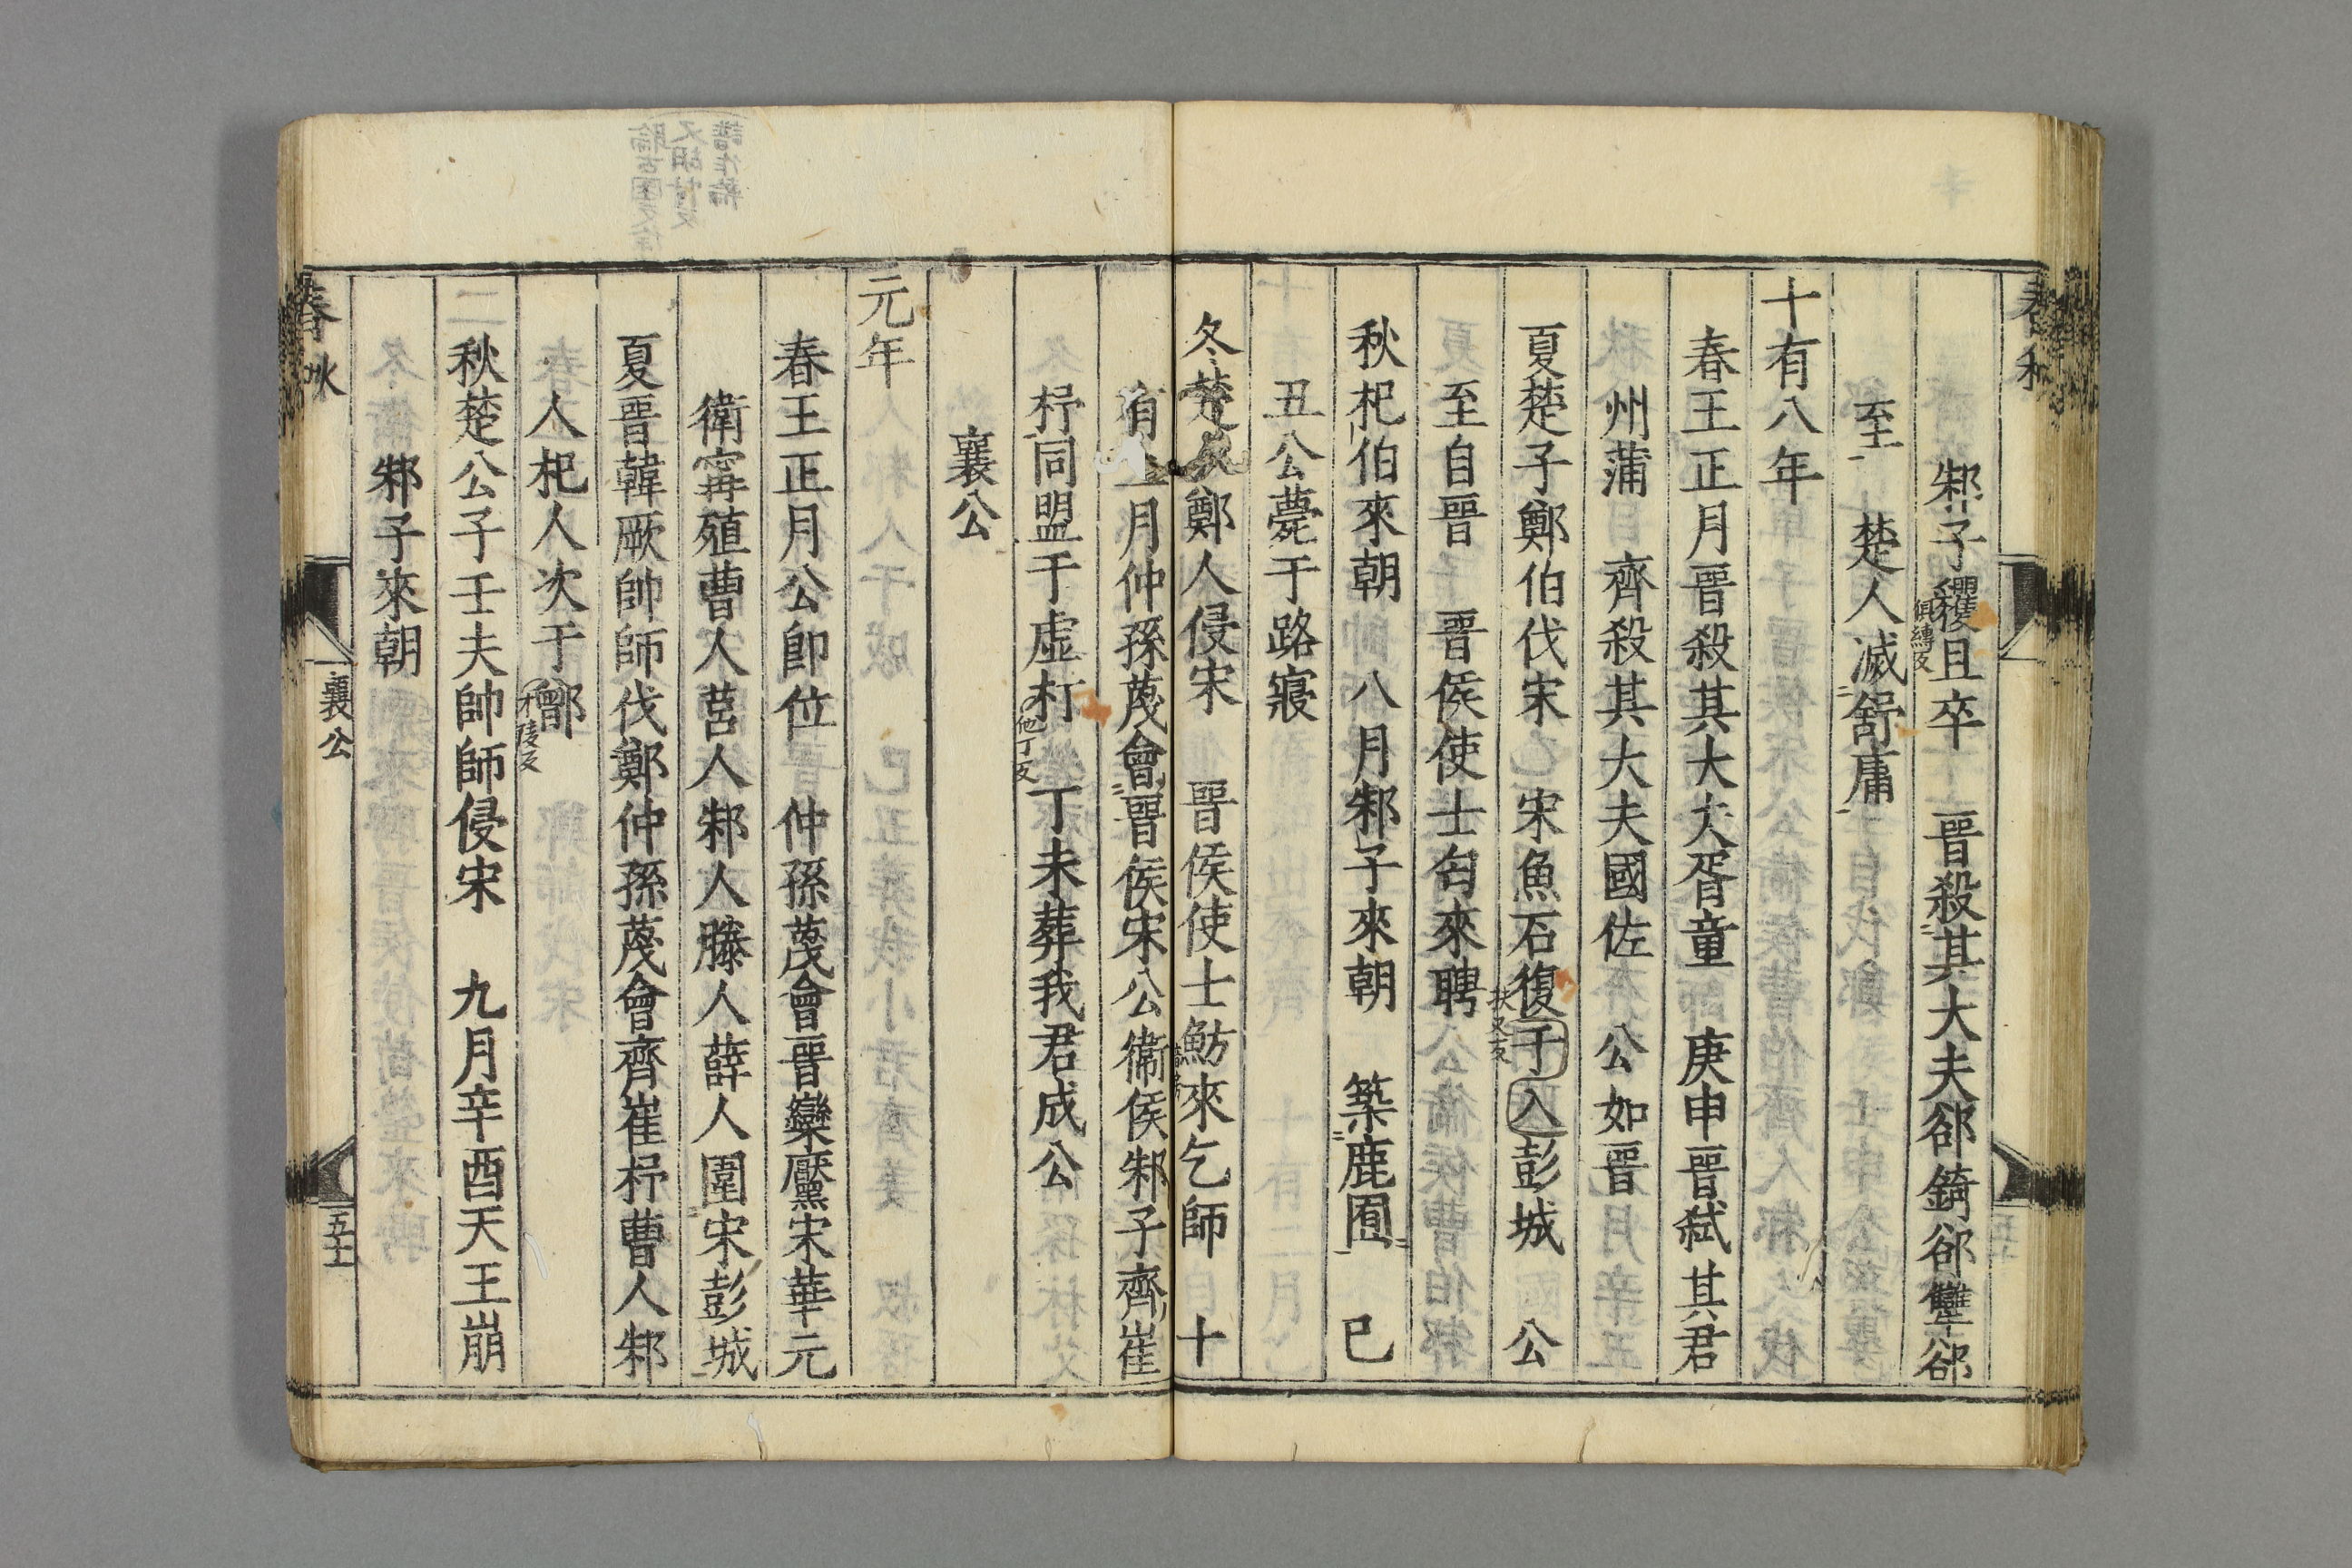 邾子貜俱縛反且卒 晉殺其大夫郤錡郤犫郤
至 楚人滅舒庸
十有八年
春王正月晉殺其大夫胥童 庚申晉弒其君
州蒲 齊殺其大夫國佐 公如晉
夏楚子鄭伯伐宋 宋魚石復扶又反于入彭城 公
至自晉 晉侯使士匄來聘
秋杞伯來朝 八月邾子來朝 築鹿囿 已
丑公薨于路寢
冬楚人鄭人侵宋 晉侯使士魴來乞師 十
有二月仲孫蔑會晉侯宋公衞侯邾子齊崔
杼同盟于虛朾他丁反丁未葬我君成公
襄公
元年
春王正月公即位 仲孫蔑會晉欒黶宋華元
衛寗殖曹人莒人邾人滕人薛人圍宋彭城
夏晉韓厥帥師伐鄭仲孫蔑會齊崔杼曹人邾
人杞人次于鄫才陵反
秋楚公子壬夫帥師侵宋 九月辛酉天王崩
邾子來朝
春秋
襄公
五十